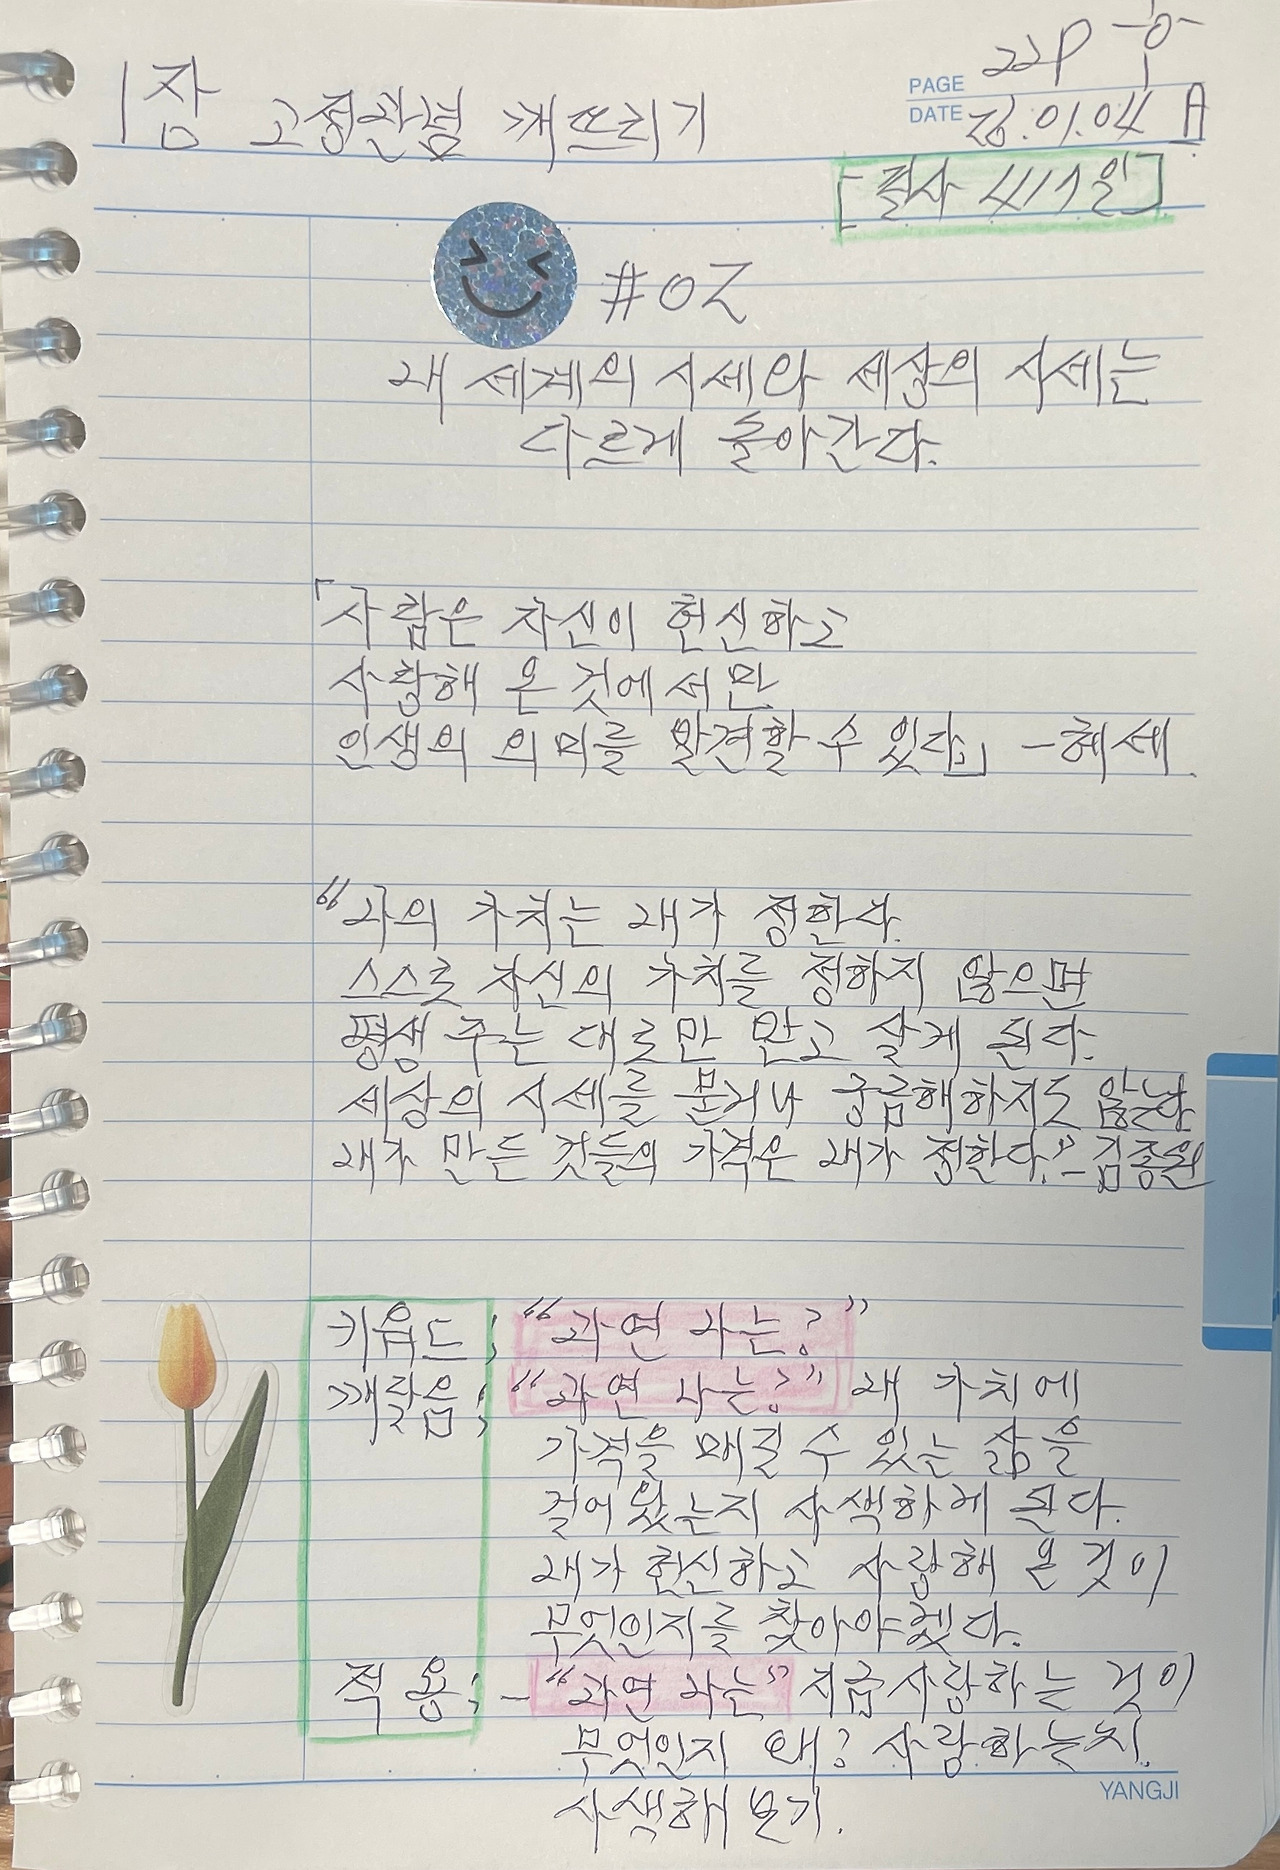 1장 고정관념 깨뜨리기
PAGE 22P
DATE 23.01.04
[필사 417일]
#02
내 세계의 시세와 세상의 시세는
다르게 돌아간다.
「사람은 자신이 헌신하고
사랑해 온 것에서만
인생의 의미를 발견할 수 있다」 - 헤세.
"나의 가치는 내가 정한다.
스스로 자신의 가치를 정하지 않으면
평생 주는 대로만 받고 살게 된다.
세상의 시세를 묻거나 궁금해하지도 않는다
내가 만든 것들의 가격은 내가 정한다." - 김종원
키워드; "과연 나는?"
깨달음; "과연 나는?" 내 가치에
가격을 매길 수 있는 삶을
걸어왔는지 사색하게 된다.
내가 헌신하고 사랑해 온 것이
무엇인지를 찾아야겠다.
적용; - "과연 나는" 지금 사랑하는 것이
무엇인지 왜? 사랑하는지.
사색해 보기.
YANGJI